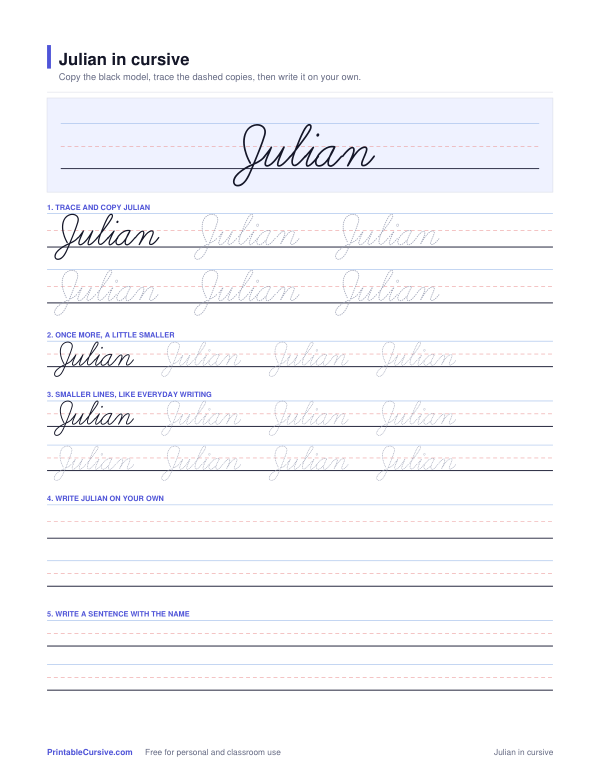 Julian in cursive
Copy the black model, trace the dashed copies, then write it on your own.
Julian
1. TRACE AND COPY JULIAN
Julian Julian Julian
Julian Julian Julian
2. ONCE MORE, A LITTLE SMALLER
Julian Julian Julian Julian
3. SMALLER LINES, LIKE EVERYDAY WRITING
Julian Julian Julian Julian
Julian Julian Julian Julian
4. WRITE JULIAN ON YOUR OWN
5. WRITE A SENTENCE WITH THE NAME
PrintableCursive.com Free for personal and classroom use Julian in cursive